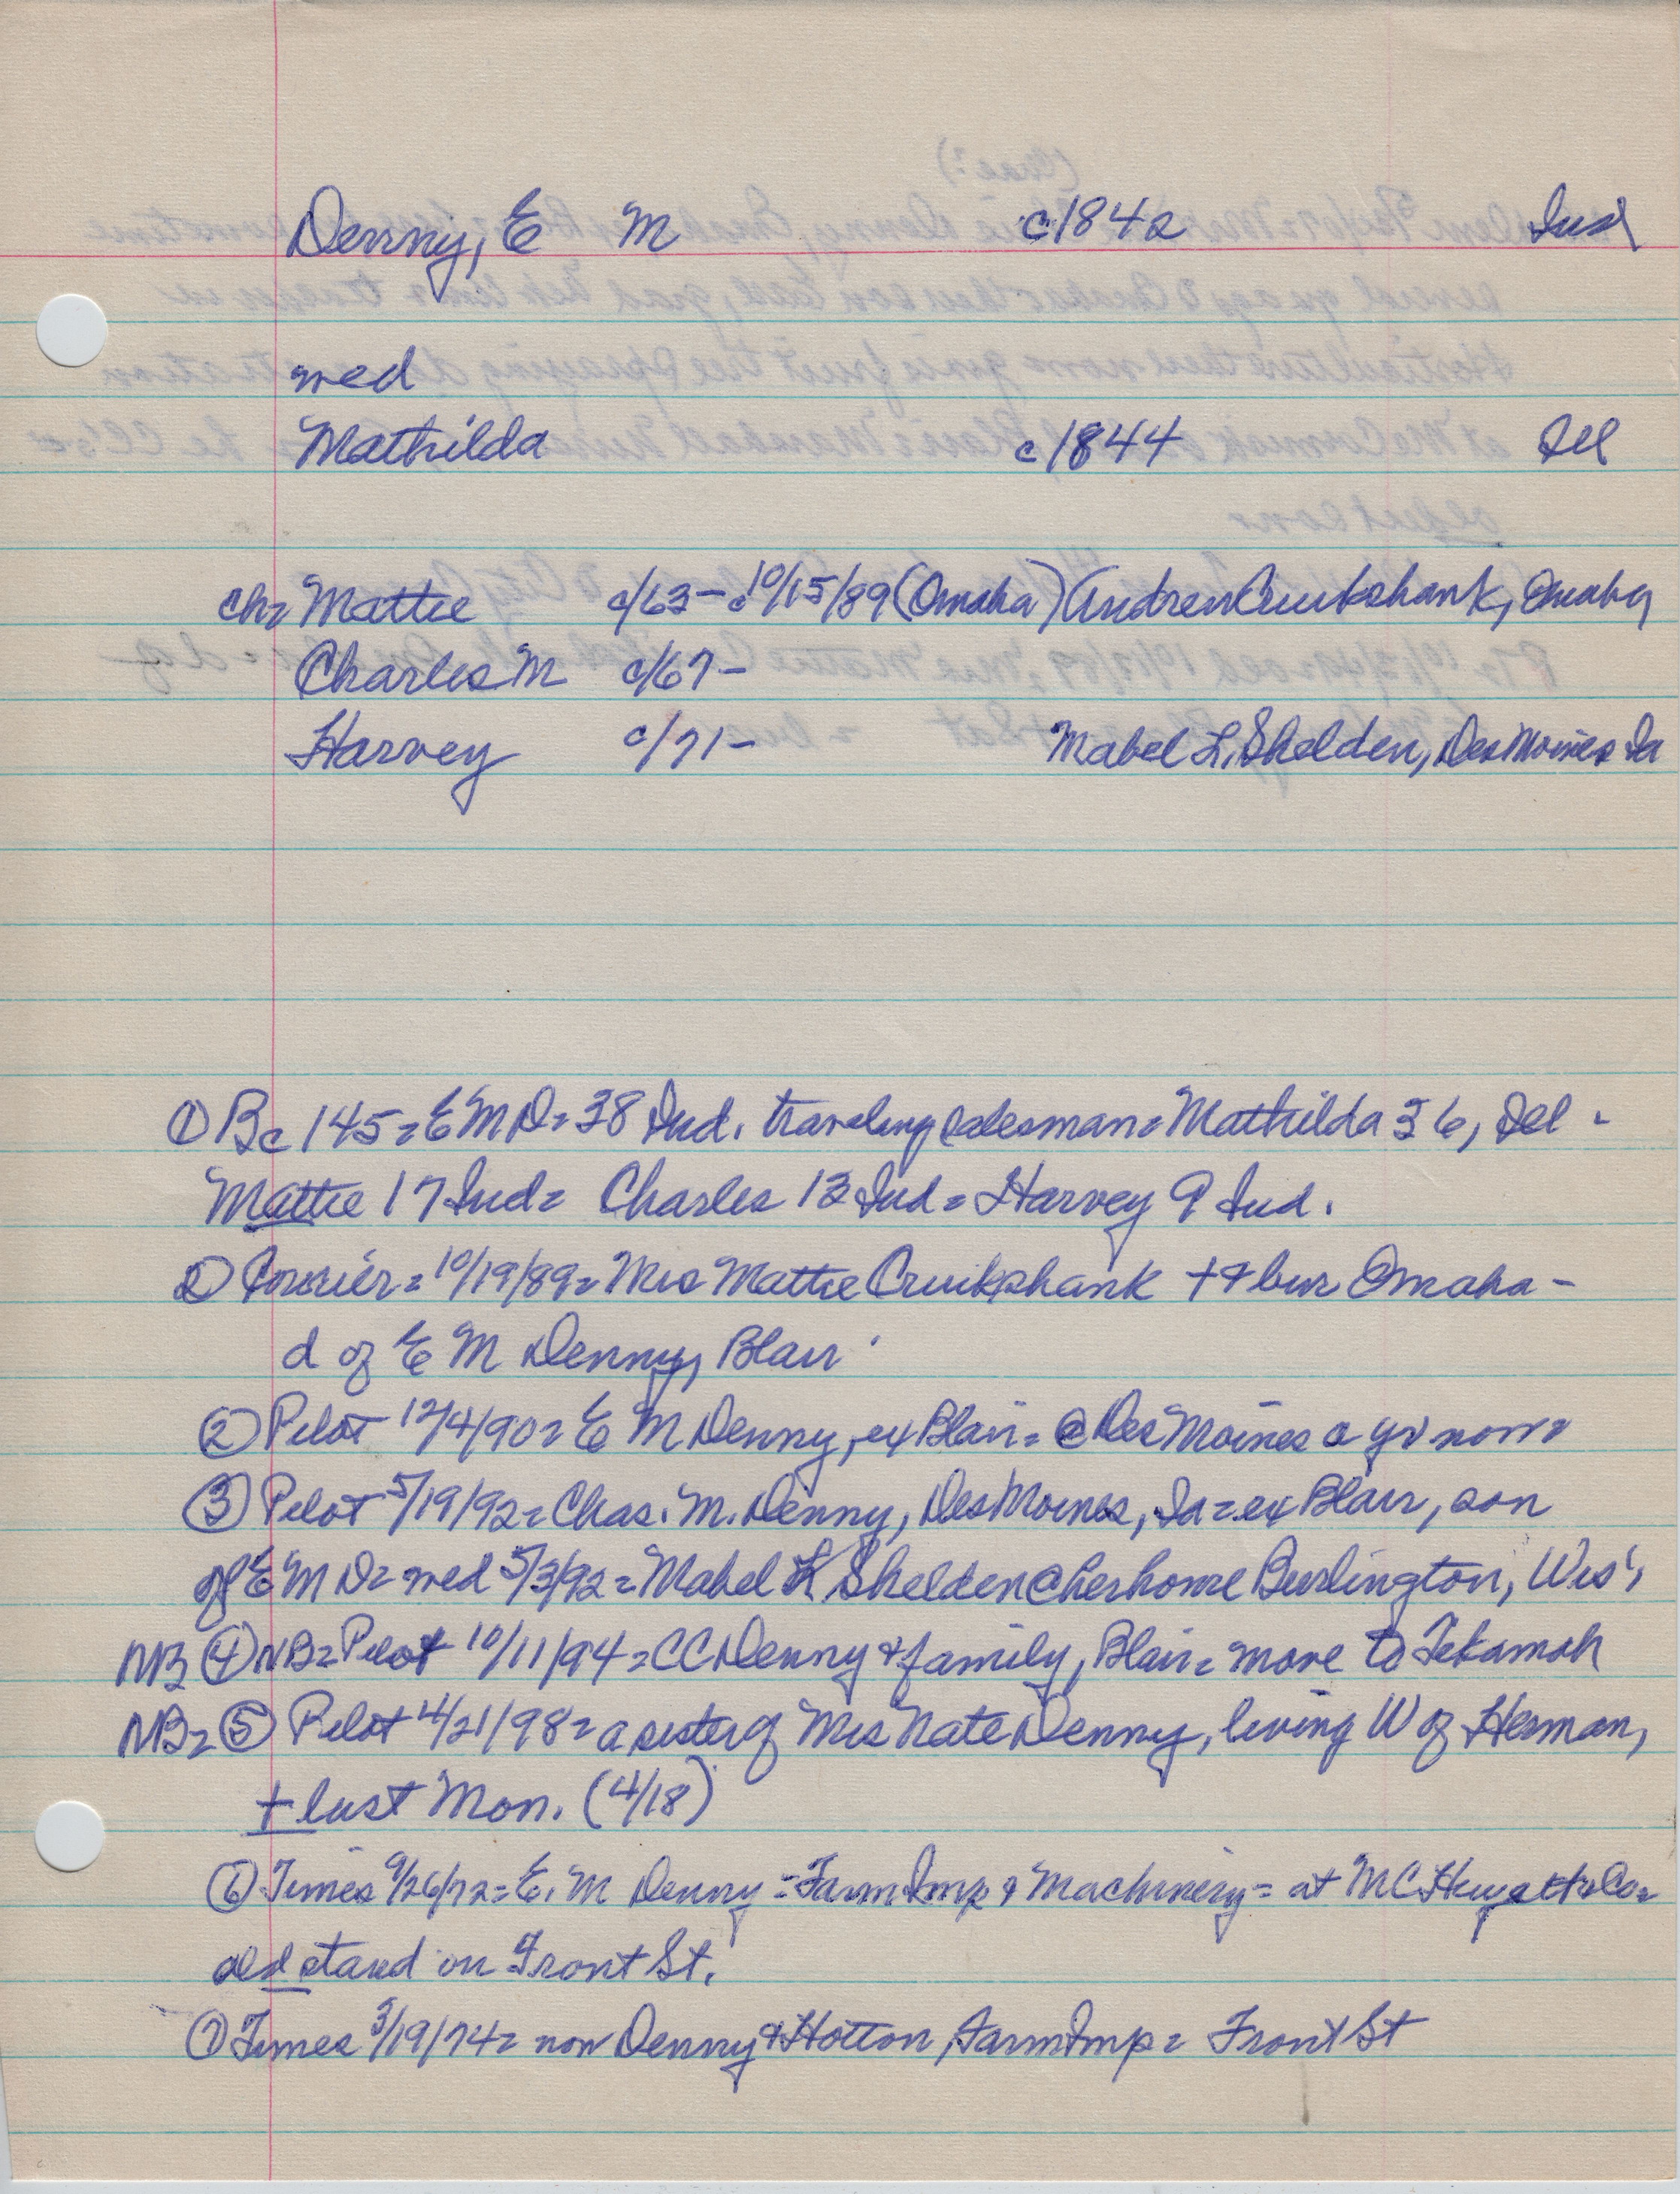 Denny, E M c1842 Ind
med
Mathilda c1844 Ill
ch= Mattie c/63 - d 10/15/89 (Omaha) (Andrew Cruikshank, Omaha
Charles M c/67 -
Harvey c/71 - Mabel L. Shelden, Des Moines Ia
① Bc 145 = E M D = 38 Ind. traveling salesman = Mathilda 36, Ill -
Mattie 17 Ind = Charles 13 Ind = Harvey 9 Ind.
② Courier = 10/19/89 = Mrs Mattie Cruikshank + & bur Omaha -
d of E M Denny, Blair
② Pilot 12/4/90 = E M Denny, ex Blair = @ Des Moines a yr now =
③ Pilot 5/19/92 = Chas. M. Denny, Des Moines, Ia = ex Blair, son
of E M D = med 5/3/92 = Mabel L Shelden @ her home Burlington, Wis.
NB ④ NB = Pilot 10/11/94 = C C Denny & family, Blair = move to Tekamah
NB = ⑤ Pilot 4/21/98 = a sister of Mrs Nate Denny, living W of Herman,
+ last Mon. (4/18)
⑥ Times 9/26/72 = E. M Denny = Farm Imp & Machinery = at M C Huyett & Co =
old stand on Front St.
⑦ Times 3/19/74 = now Denny & Hotton, Farm Imp = Front St